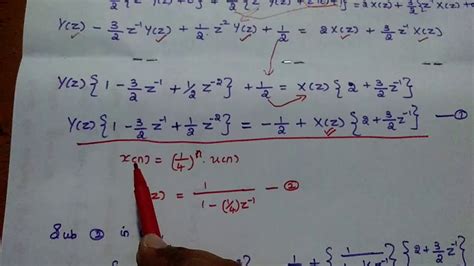 = 2X(z) + 3/2 {z⁻¹X(z)
Y(z) - 3/2 z⁻¹ Y(z) + 1/2 z⁻² Y(z) + 1/2 = 2X(z) + 3/2 z⁻¹ X(z)
Y(z) {1 - 3/2 z⁻¹ + 1/2 z⁻²} + 1/2 = X(z) {2 + 3/2 z⁻¹}
Y(z) {1 - 3/2 z⁻¹ + 1/2 z⁻²} = -1/2 + X(z) {2 + 3/2 z⁻¹} — ①
x(n) = (1/4)ⁿ . u(n)
z) = 1 / 1 - (1/4) z⁻¹ — ②
Sub ② in